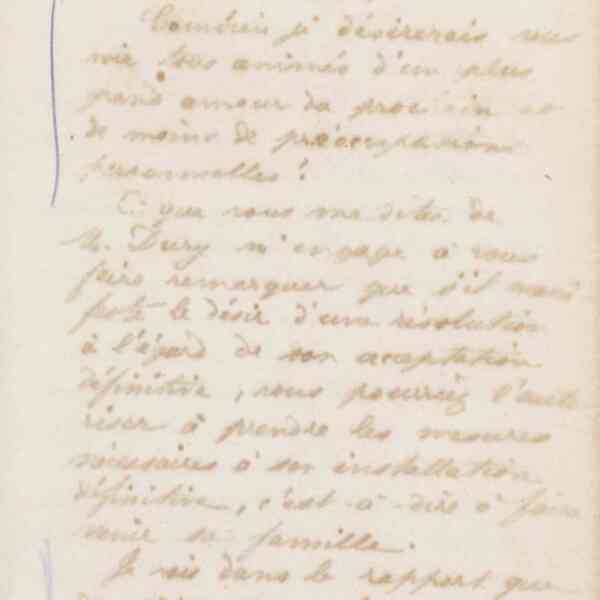 Combien je désirerais vous
voir tous animés d'un plus
grand amour du prochain et
de moins de préoccupations
personnelles !
Ce que vous me dites de
M. Dury m'engage à vous
faire remarquer que s'il mani
feste le désir d'une résolution
à l'égard de son acceptation
définitive, vous pourriez l'auto
riser à prendre les mesures
nécessaires à son installation
définitive, c'est-à-dire à faire
venir sa famille.
Je vois dans le rapport que